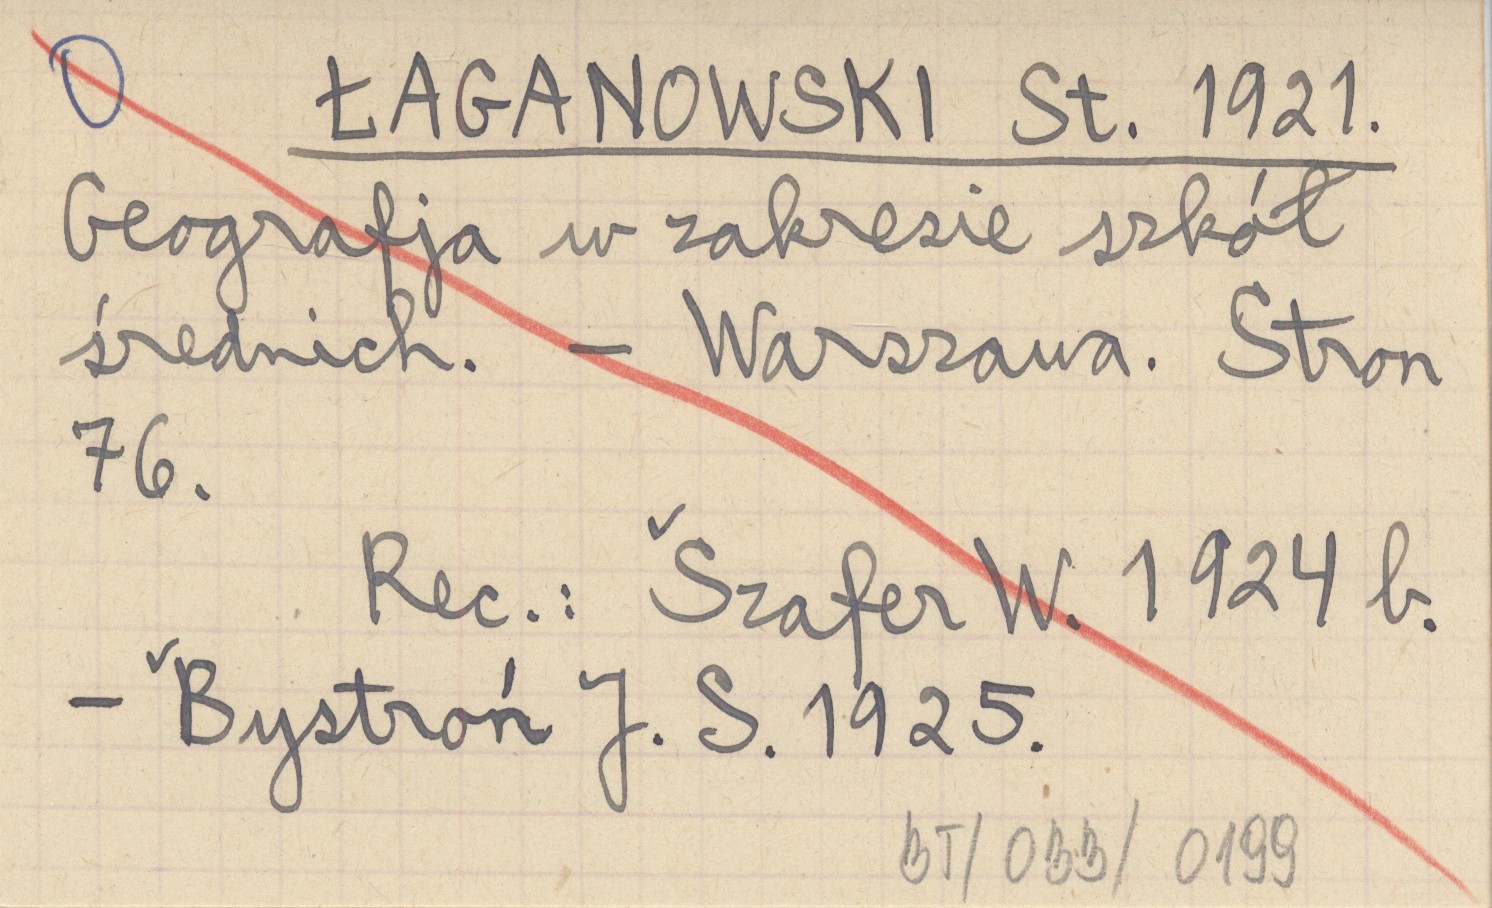 ŁAGANOWSKI St. 1921.
Geografja w zakresie szkół
średnich. – Warszawa. Stron
76.
Rec.: Szafer W. 1924 b.
– Bystroń J. S. 1925.
BT/OBB/0199